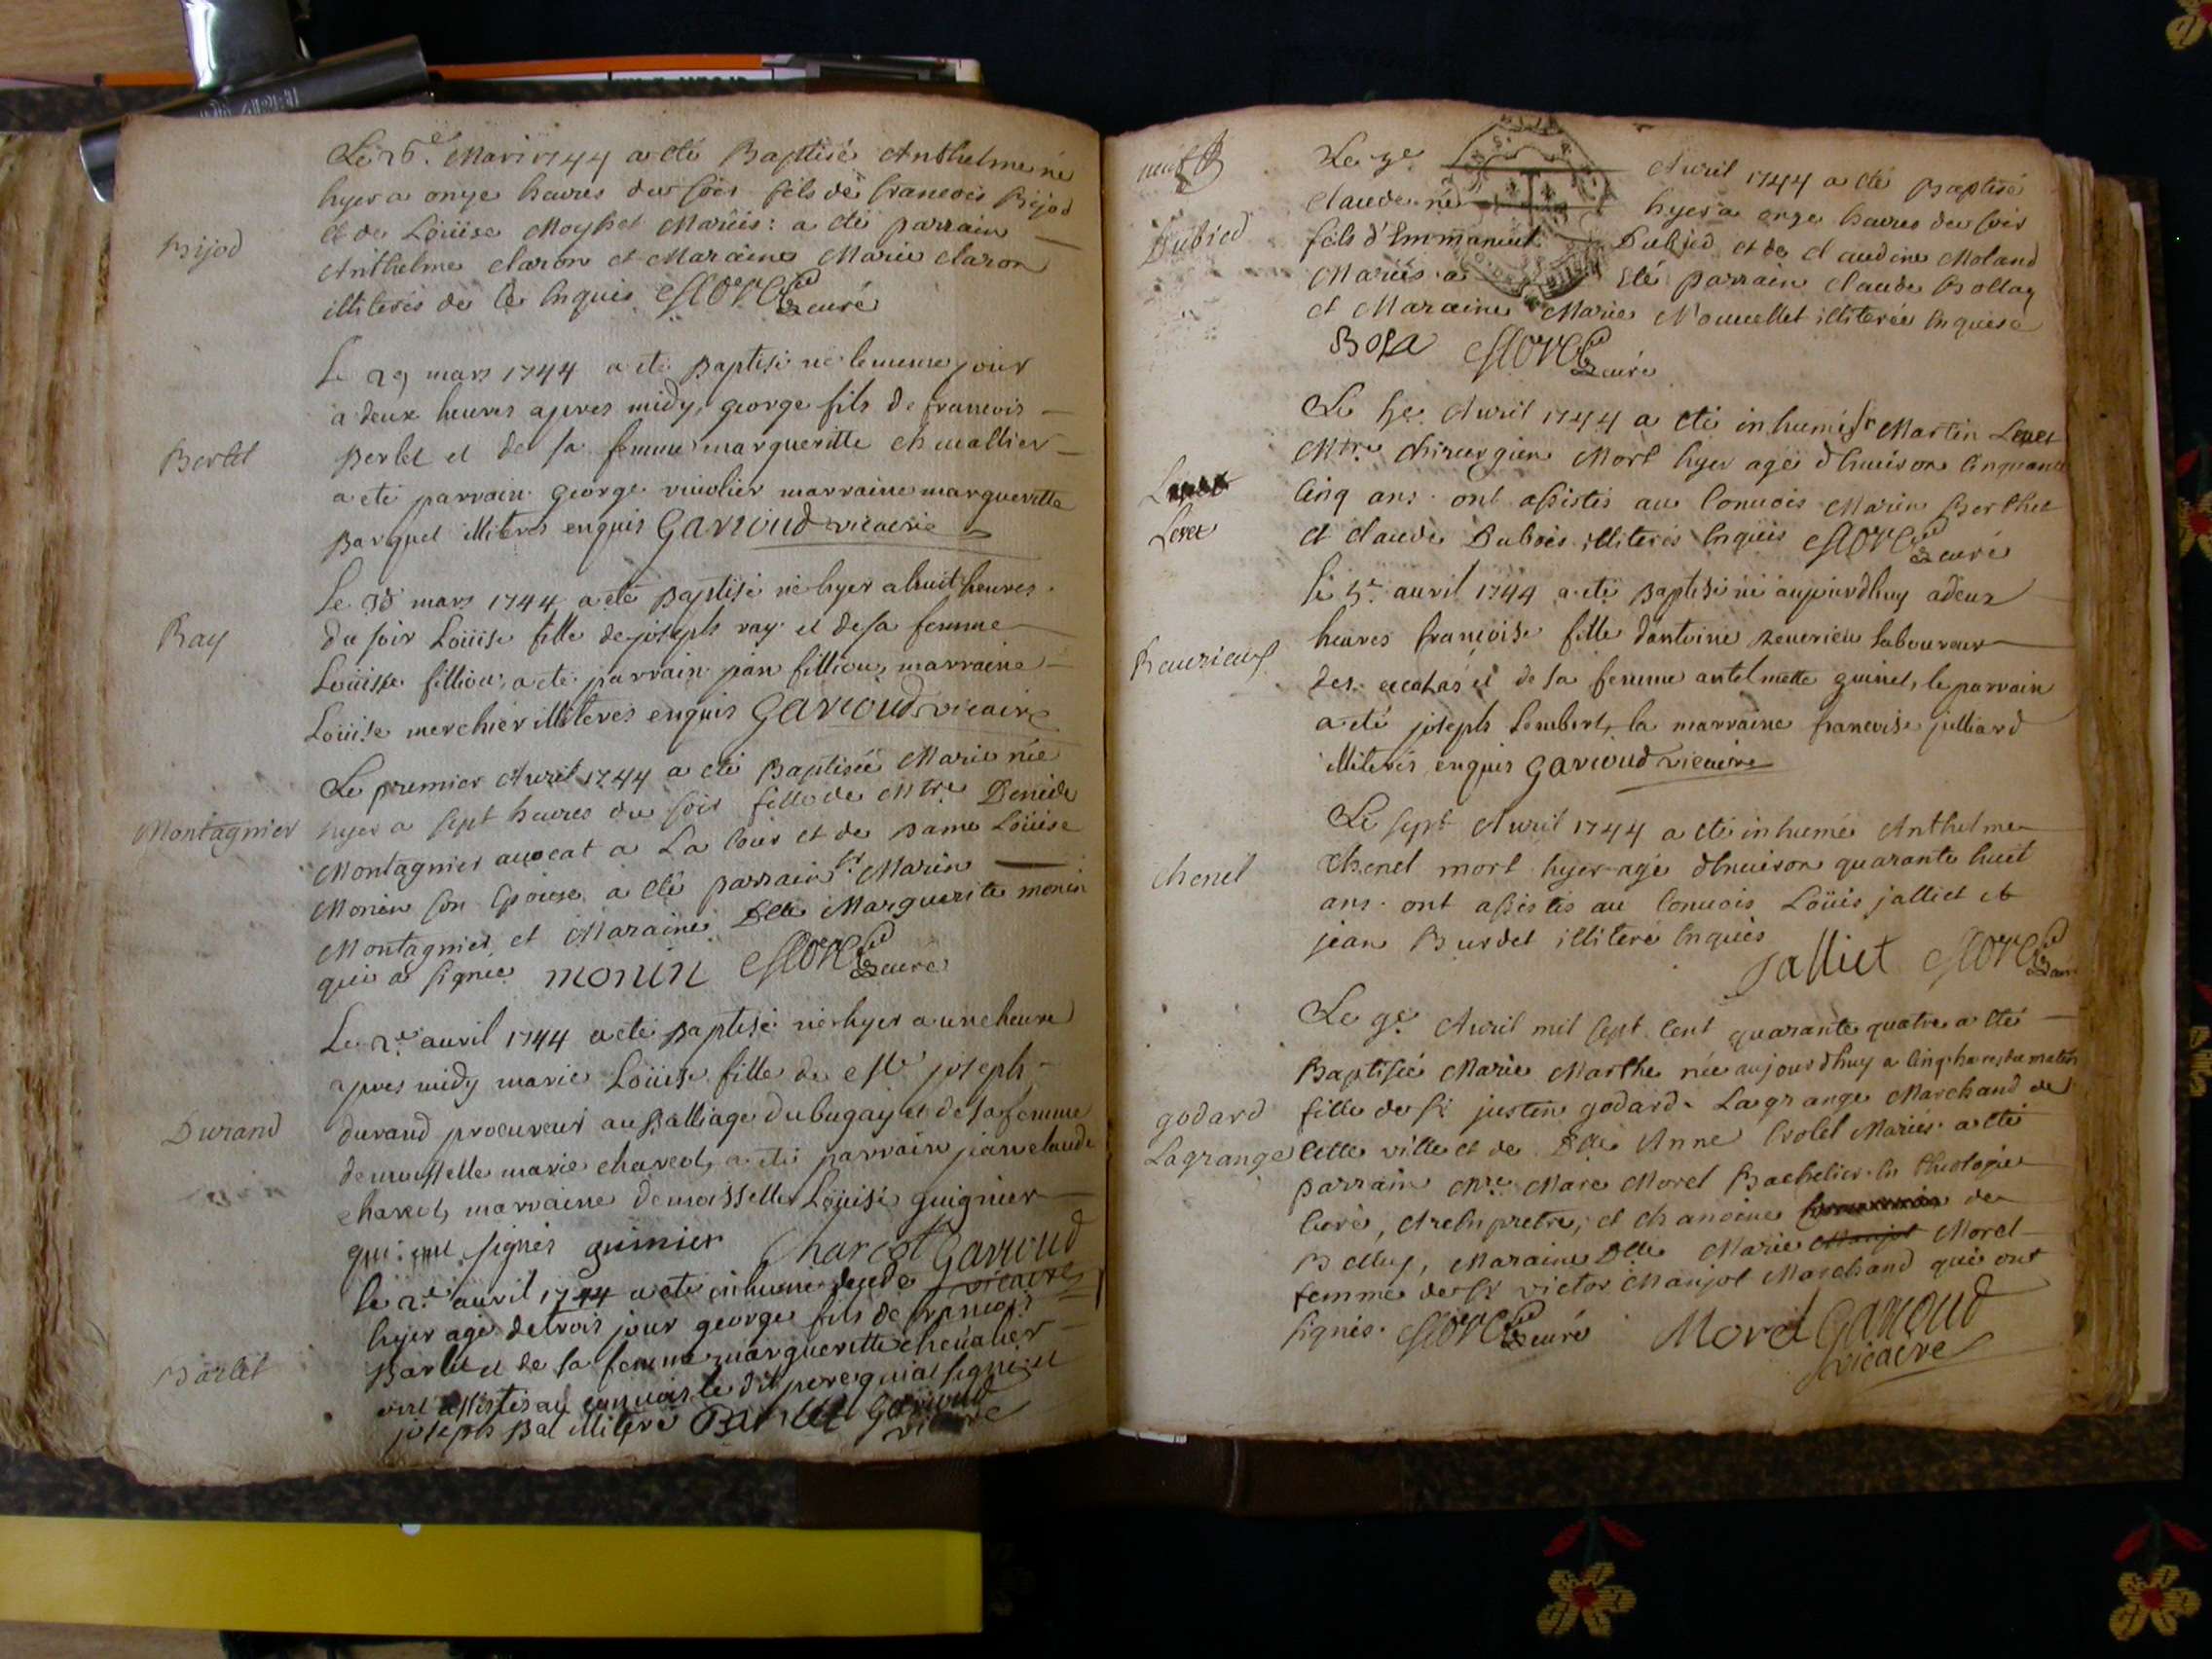 Le 26.e Mars 1744 a eté Baptisé Anthelme né
hyer a onze heures du soir fils de francois Bijod
Bijod
et de Loüise Moyhet Mariés: a été parrain
Anthelme claron et Maraine Marie claron
illiterés de ce Enquis curé
Le 29 mars 1744 a eté Baptisé né le meme jour
a deux heures apres midy, george fils de francois
Berlet
Berlet et de sa femme margueritte chevallier
a eté parrain george vincelier marraine margueritte
Barquet illiterés enquis Garioud vicaire
Le 30 mars 1744 a eté Baptisé né hyer a huit heures
Ray
du soir Loüise fille de joseph ray et de sa femme
Loüise filliou, a eté parrain jean filliou, marraine
Loüise merchier illiterés enquis Garioud vicaire
Le premier Avril 1744 a eté Baptisée Marie née
Montagnier
hyer a sept heures du soir fille de Mtre Benide
Montagnier avocat a La Cour et de Dame Loüise
Monin son Epouse a eté parrain sr Marin
Montagnier et Maraine Dlle Marguerite monin
qui a signée monin curé
Le 2.e avril 1744 a eté Baptisé né hyer a une heure
apres midy marie Loüise fille de joseph
Durand
durand procureur au Balliage du bugay et de sa femme
demoiselle marie charcot, a eté parrain jean claude
charcot, marraine demoisselle Loüise guignier
qui ont signés guinier Charcot Garioud
vicaire
le 2.e avril 1744 a eté inhumé decedé
hyer agé de trois jour george fils de francois
Barlet
Barlet et de sa femme margueritte chevalier
ont assistés au convois le dit pere qui at signé et
joseph Bal illiteré Barlet Garioud
vicaire
neuf
Le 3e Avril 1744 a eté Baptisé
Claude né hyer a onze heures du soir
Dubied
fils d'Emmanuel Dubied et de Claudine Moland
Mariés a Eté parrain claude Bollaz
et Maraine Marie Nouvellet illiterée Enquise
Bosa curé
Le 5e Avril 1744 a eté inhumé sr Martin Levet
Mtre chirurgien Mort hyer agé d'Environ Cinquante
Levet
cinq ans. ont assistés au Convois Marin Berthet
et claude Dubois illiterés Enquis curé
le 5e avril 1744 a eté Baptisé né aujourdhuy a deux
heures francoise fille dantoine reverieu laboureur
Reurieux
des et de sa femme antelmette guinet, le parrain
a eté joseph Lembert, la marraine francoise julliard
illiterés enquis Garioud vicaire
Le sept Avril 1744 a eté inhumé Anthelme
chenel
Chenel mort hyer agé d'Environ quarante huit
ans. ont assistés au Convois Loüis jalliet et
jean Burdet illiteré Enquis
Jalliet curé
Le 9e Avril mil sept Cent quarante quatre a eté
Baptisée Marie Marthe née aujourdhuy a cinq heures du matin
godard
fille de sr justin godard Lagrange Marchand de
Lagrange
Cette ville et de Dlle Anne Crolet Mariés. a eté
parrain Mre Marc Morel Bachelier en theologie
Curé, Archipretre, et chanoine de
Belley, Maraine Dlle Marie Manjot Morel
femme de sr victor Manjot Marchand qui ont
signés. curé Morel Garioud
vicaire